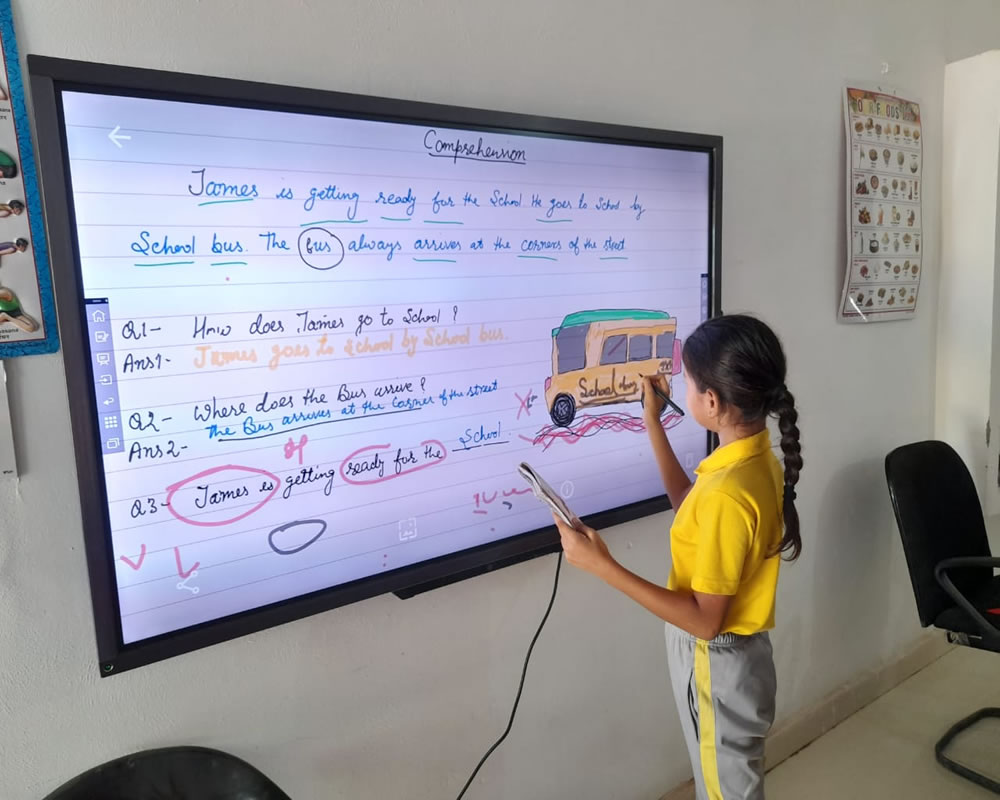 Comprehension
James is getting ready for the School He goes to School by
School bus. The bus always arrives at the corners of the street
Q1- How does James go to School ?
Ans1- James goes to School by School bus.
Q2- Where does the Bus arrive ?
Ans2- The Bus arrives at the corner of the street
Q3- James is getting ready for the School.
School
FOODS